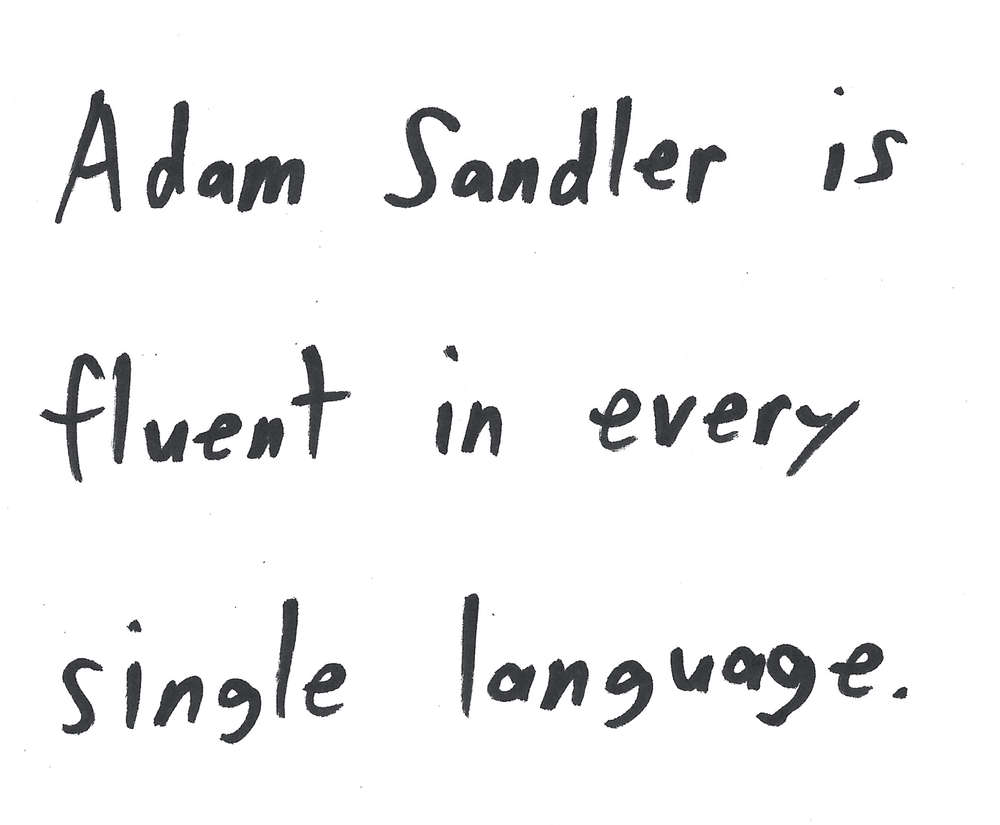 Adam Sandler is
fluent in every
single language.